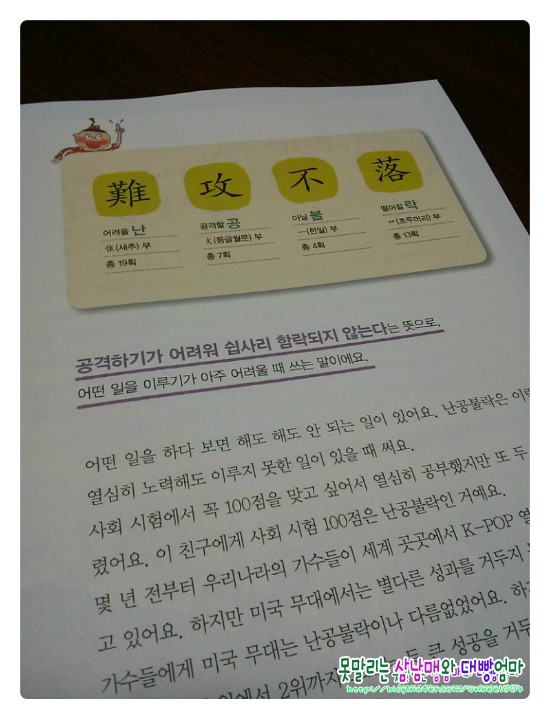 難 攻 不 落
어려울 난 공격할 공 아닐 불 떨어질 락
隹(새추) 부 攵(등글월문) 부 一(한일) 부 艹(초두머리) 부
총 19획 총 7획 총 4획 총 13획
공격하기가 어려워 쉽사리 함락되지 않는다는 뜻으로,
어떤 일을 이루기가 아주 어려울 때 쓰는 말이에요.
어떤 일을 하다 보면 해도 해도 안 되는 일이 있어요. 난공불락은
열심히 노력해도 이루지 못한 일이 있을 때 써요.
사회 시험에서 꼭 100점을 맞고 싶어서 열심히 공부했지만 또 두
렸어요. 이 친구에게 사회 시험 100점은 난공불락인 거예요.
몇 년 전부터 우리나라의 가수들이 세계 곳곳에서 K-POP
고 있어요. 하지만 미국 무대에서는 별다른 성과를 거두지
가수들에게 미국 무대는 난공불락이나 다름없었어요.
2위까지 큰 성공을
못말리는 삼남매와 대빵엄마